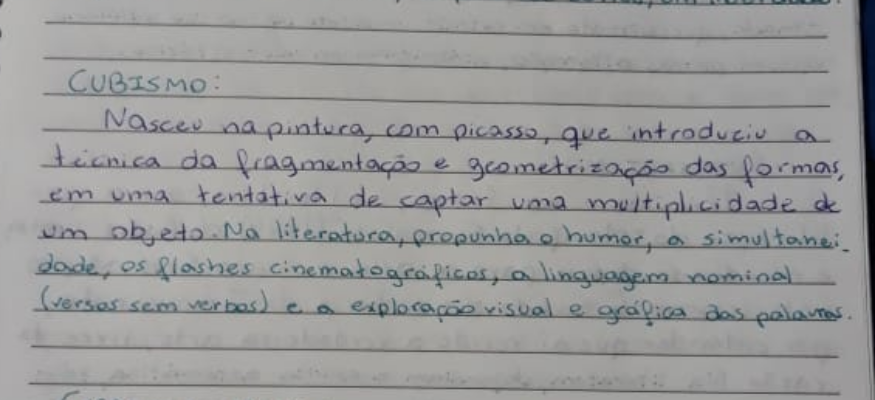 CUBISMO:
Nasceu na pintura, com picasso, que introduciu a
técnica da fragmentação e geometrização das formas,
em uma tentativa de captar uma multiplicidade de
um objeto. Na literatura, propunha o humor, a simultanei-
dade, os flashes cinematográficos, a linguagem nominal
(versos sem verbos) e a exploração visual e gráfica das palavras.